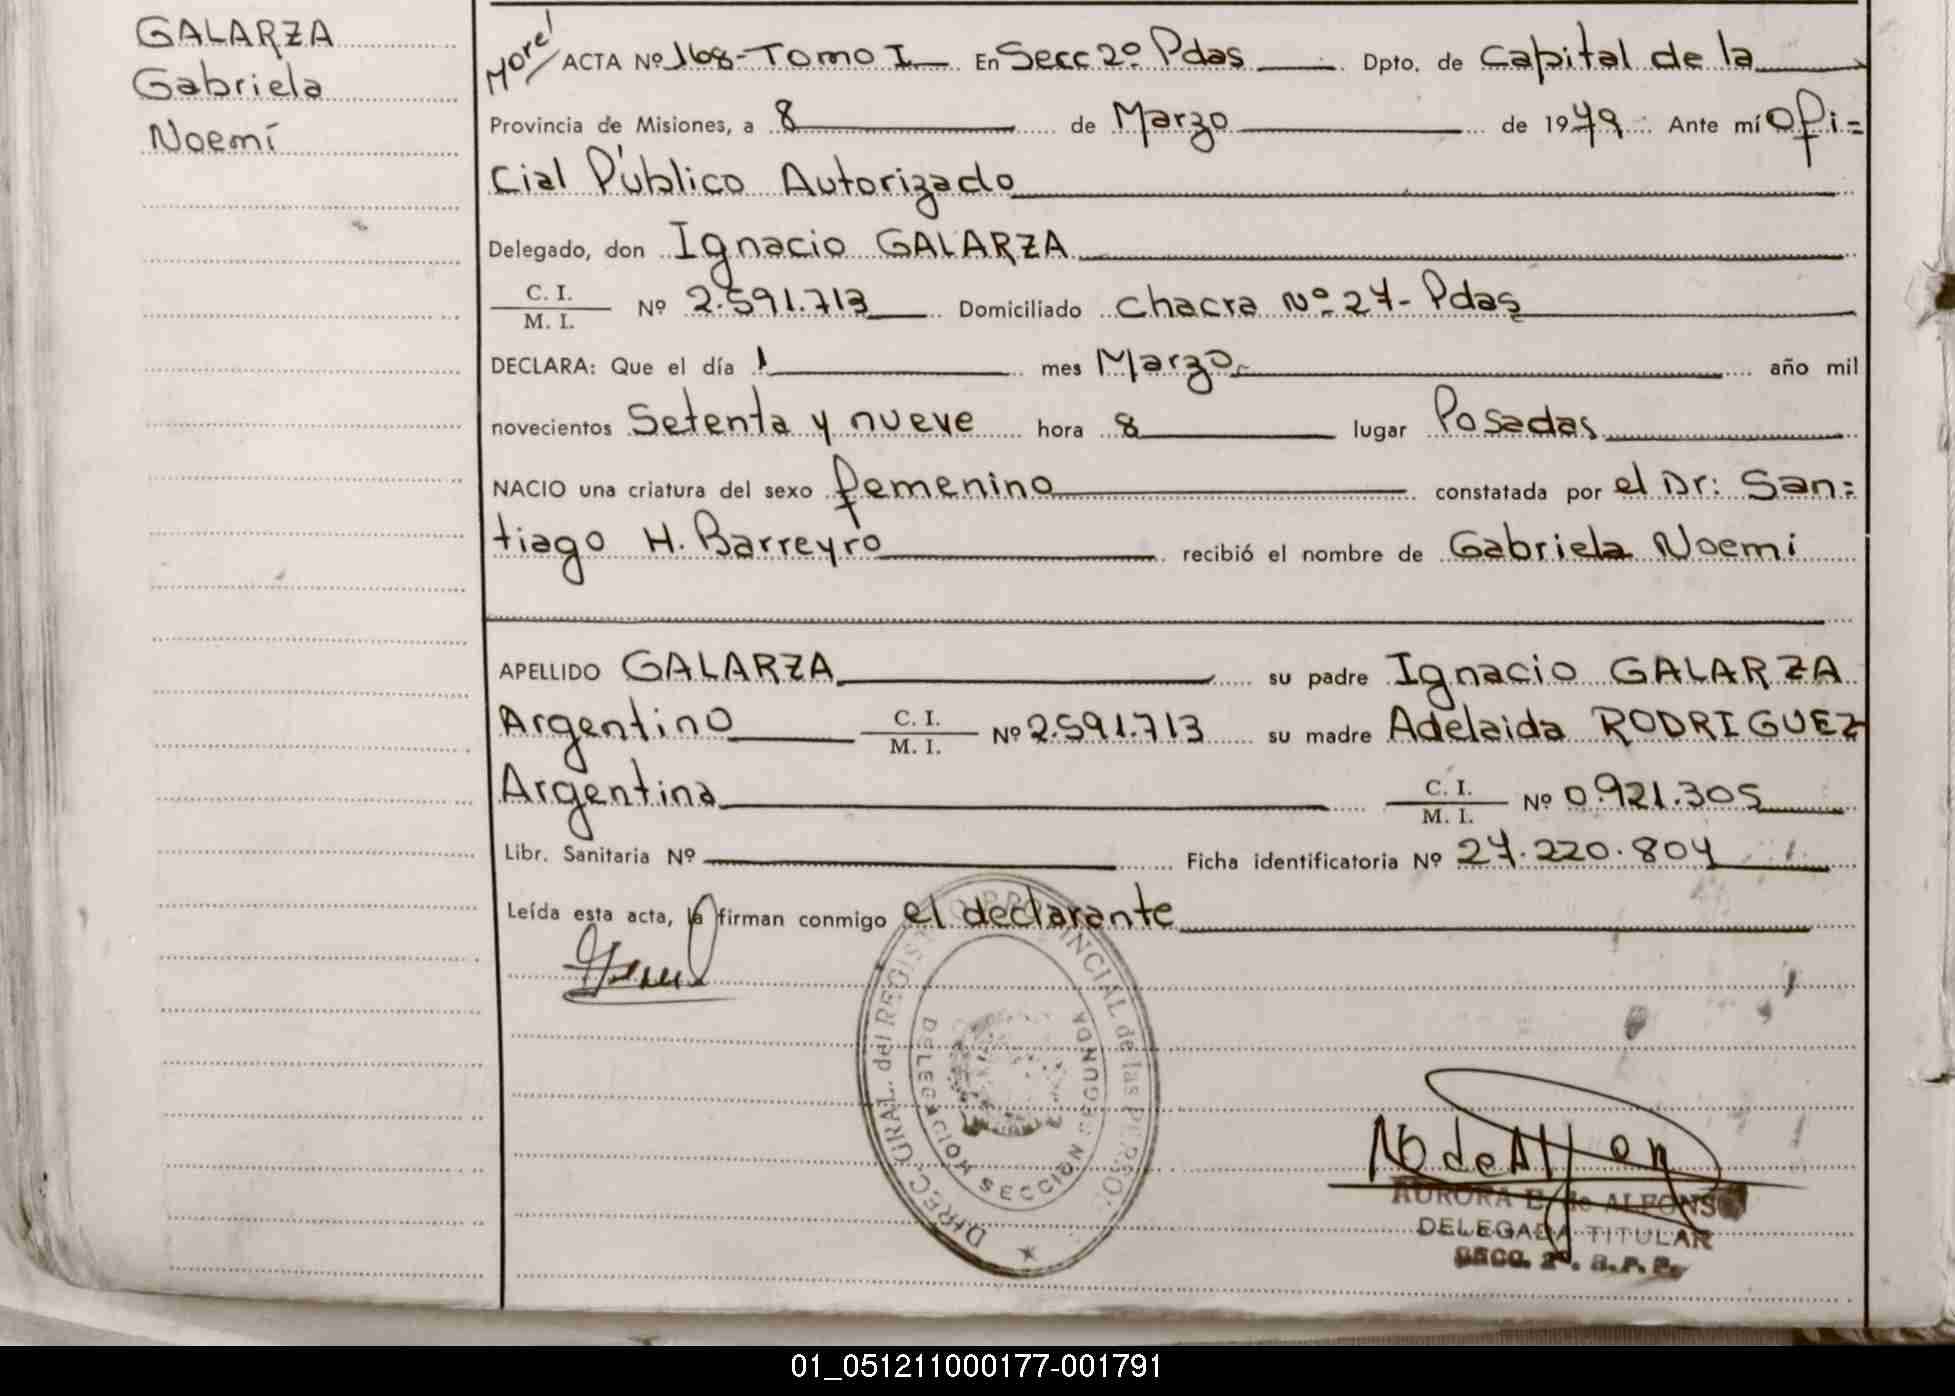 GALARZA
Gabriela
Noemí
ACTA Nº 168-Tomo I En Secc 2º Pdas Dpto. de Capital de la
Provincia de Misiones, a 8 de Marzo de 1979 Ante mí Ofi=
cial Público Autorizado
Delegado, don Ignacio GALARZA
C. I.
M. I. Nº 2.591.713 Domiciliado Chacra Nº 27- Pdas
DECLARA: Que el día 1 mes Marzo año mil
novecientos Setenta y nueve hora 8 lugar Posadas
NACIO una criatura del sexo femenino constatada por el Dr: San=
tiago H. Barreyro recibió el nombre de Gabriela Noemi
APELLIDO GALARZA su padre Ignacio GALARZA
Argentino C. I.
M. I. Nº 2.591.713 su madre Adelaida RODRIGUEZ
Argentina C. I.
M. I. Nº 0.921.305
Libr. Sanitaria Nº Ficha identificatoria Nº 27.220.804
Leída esta acta, la firman conmigo el declarante
DIREC. GRAL. del REGISTRO PROVINCIAL de las PERSO.
DELEGACION SECCION SEGUNDA
AURORA E. de ALFONSO
DELEGADA TITULAR
SECC. 2ª. R. P. P.
01_051211000177-001791